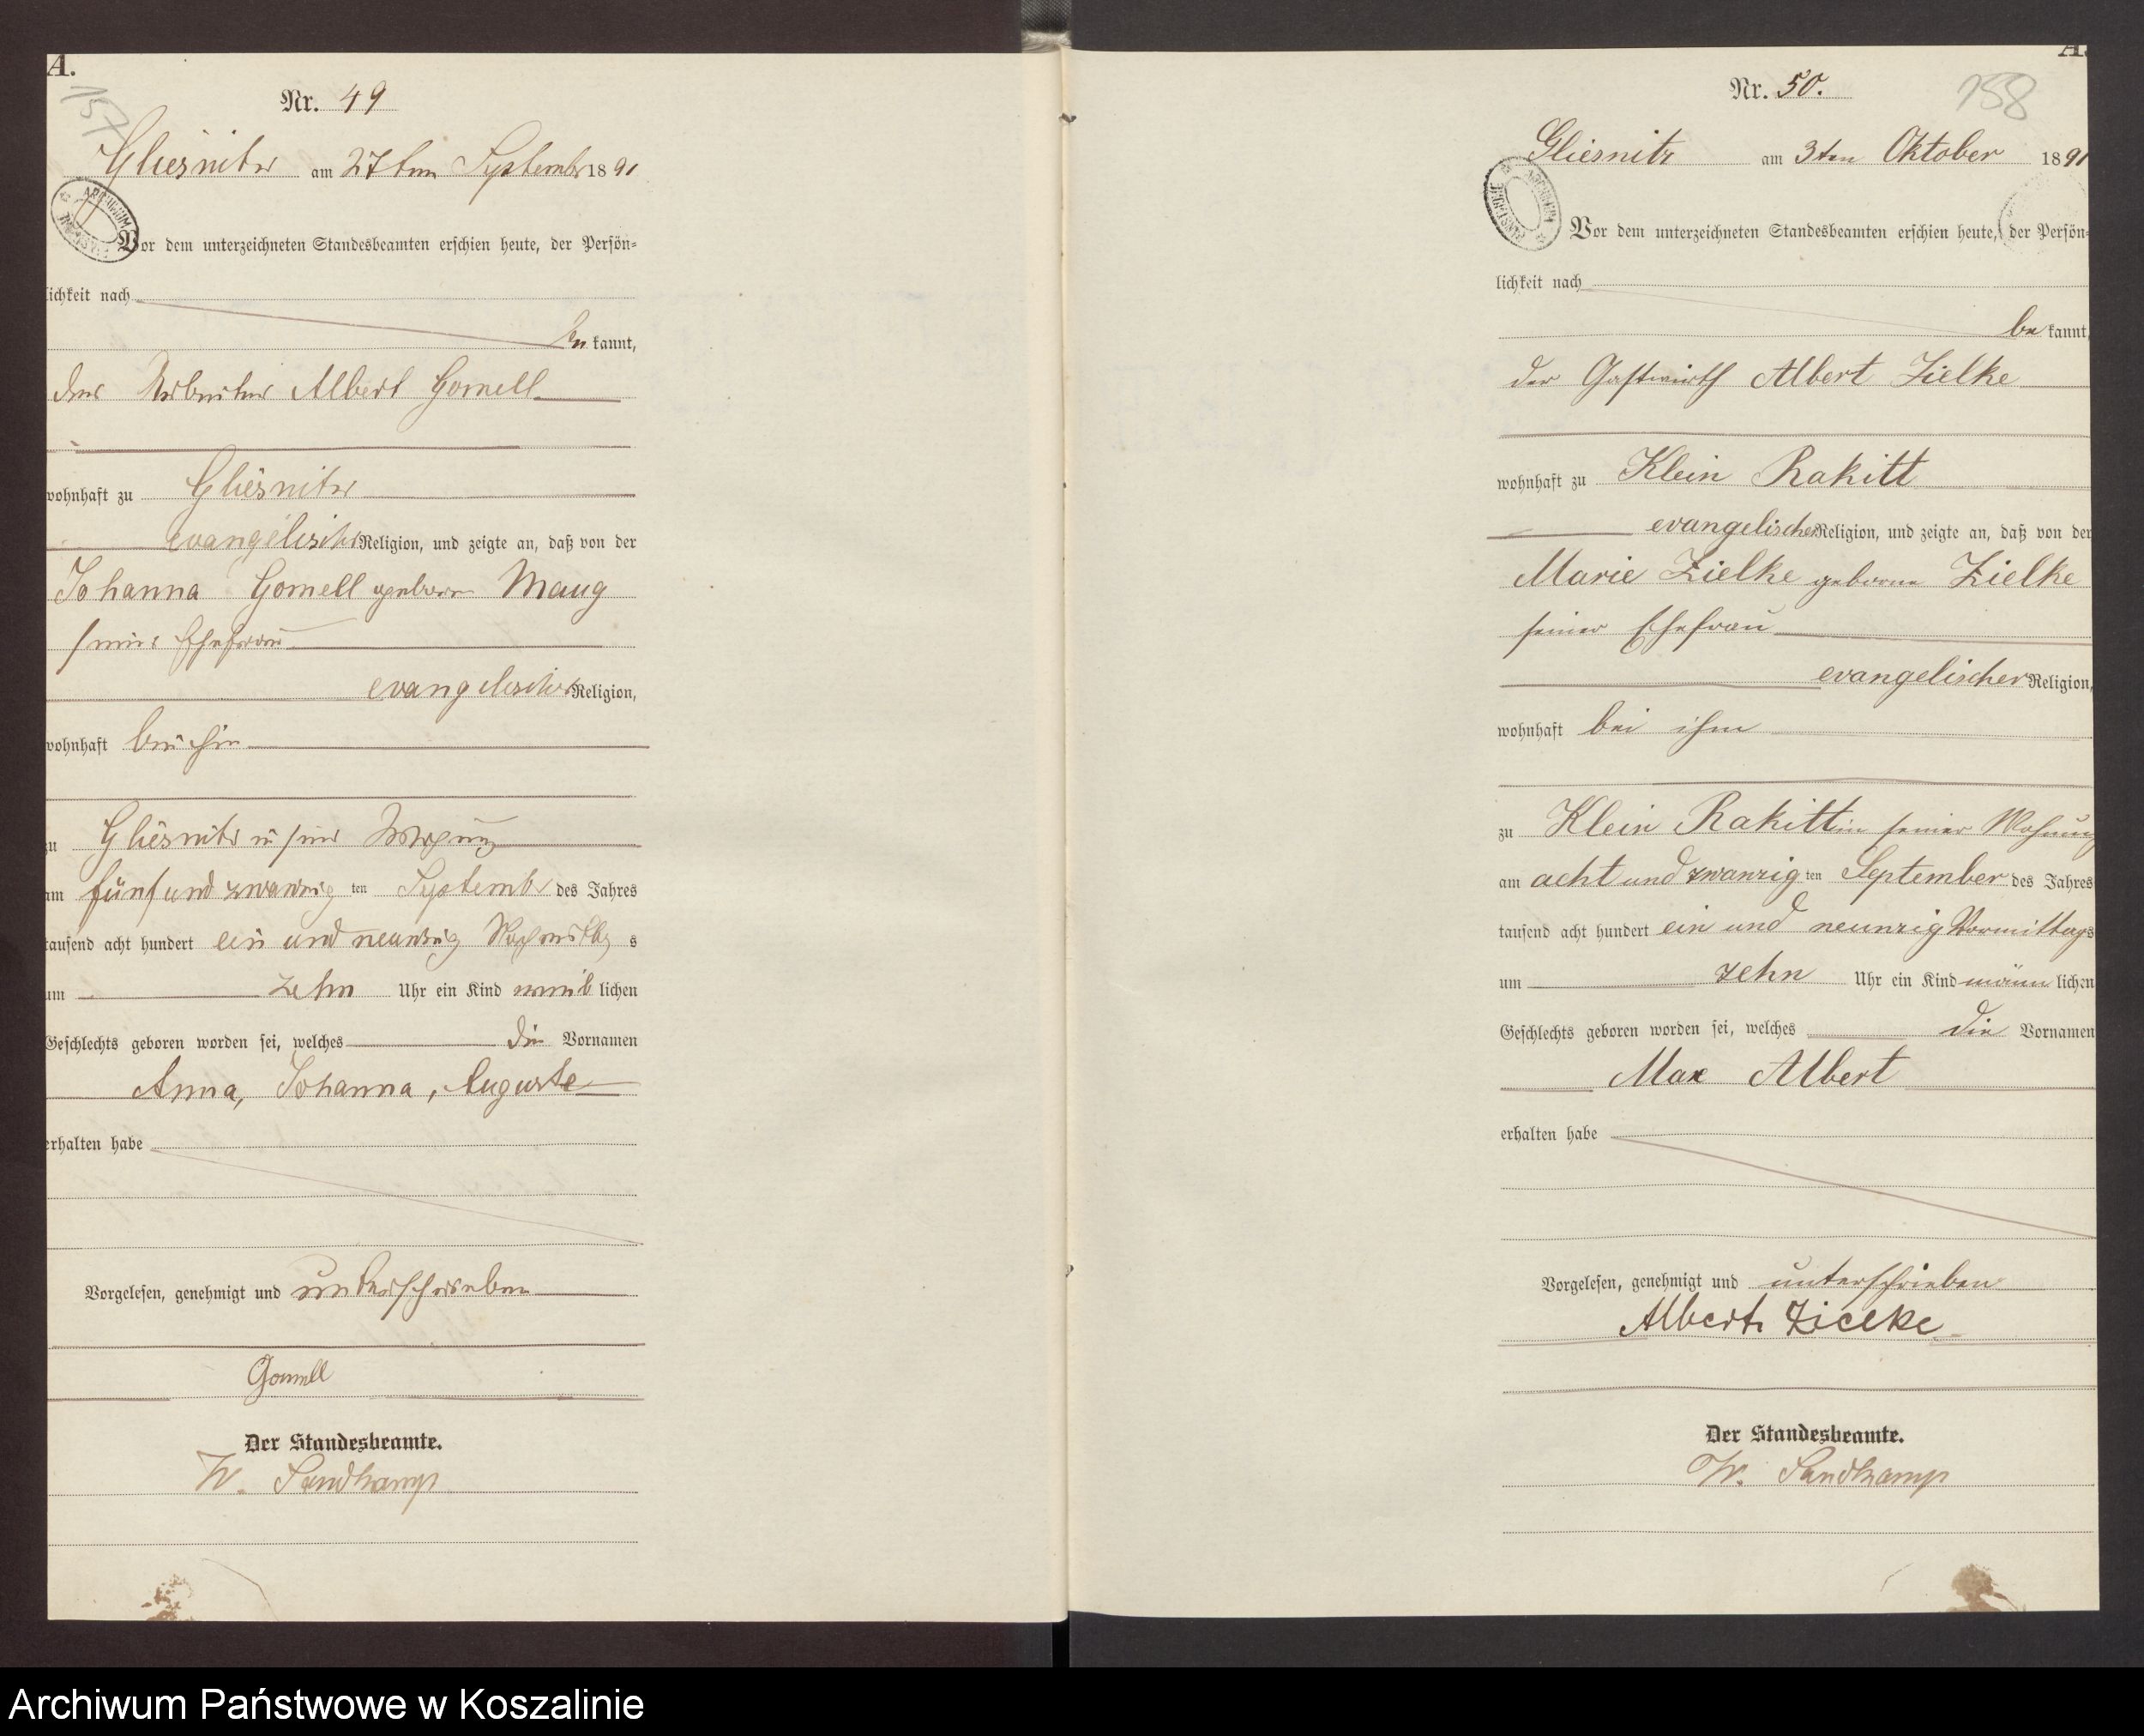 A.
157
Nr. 49
Gliesnitz am 27ten September 1891
Vor dem unterzeichneten Standesbeamten erschien heute, der Persön=
lichkeit nach
be kannt,
der Arbeiter Albert Gomell
wohnhaft zu Gliesnitz
evangelischer Religion, und zeigte an, daß von der
Johanna Gomell geborne
seiner Ehefrau
evangelischer Religion,
wohnhaft bei ihm
zu Gliesnitz in seiner Wohnung
am fünf und zwanzig ten September des Jahres
tausend acht hundert ein und neunzig s
um zehn Uhr ein Kind weib lichen
Geschlechts geboren worden sei, welches die Vornamen
Anna, Johanna, Auguste
erhalten habe
Vorgelesen, genehmigt und unterschrieben
Gomell
Der Standesbeamte.
W. Sandkamp
A.
158
Nr. 50.
Gliesnitz am 3ten Oktober 1891
Vor dem unterzeichneten Standesbeamten erschien heute, der Persön=
lichkeit nach
be kannt,
der Gastwirth Albert Zielke
wohnhaft zu Klein Rakitt
evangelischer Religion, und zeigte an, daß von der
Marie Zielke geborne Zielke
seiner Ehefrau
evangelischer Religion,
wohnhaft bei ihm
zu Klein Rakitt in seiner Wohnung
am acht und zwanzig ten September des Jahres
tausend acht hundert ein und neunzig Vormittags
um zehn Uhr ein Kind männ lichen
Geschlechts geboren worden sei, welches die Vornamen
Max Albert
erhalten habe
Vorgelesen, genehmigt und unterschrieben
Albert Zielke
Der Standesbeamte.
W. Sandkamp
Archiwum Państwowe w Koszalinie